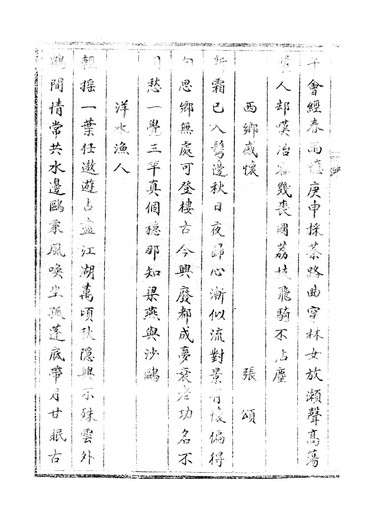 會經春雨 庚申採茶路曲穿林女放瀨聲高蕩
人却嘆冶容幾喪國荔枝飛騎不占塵
西鄉感懷 張頌
新霜已入鬢邊秋日夜歸心漸似流對景有懷偏得
句思鄉無處可登樓古今興廢都成夢 老功名不
愁一覺三年真個穩那知梁燕與沙鷗
洋水漁人
輕搖一葉任遨遊占盡江湖萬頃秋隱興不殊雲外
鶴閒情常共水邊鷗乘風喚 孤蓬底帶月甘眠古